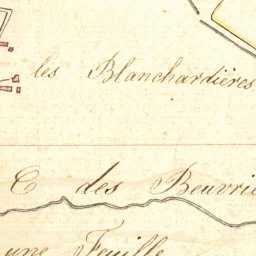 les Blanchardières
C des Beuvri
une Feuille